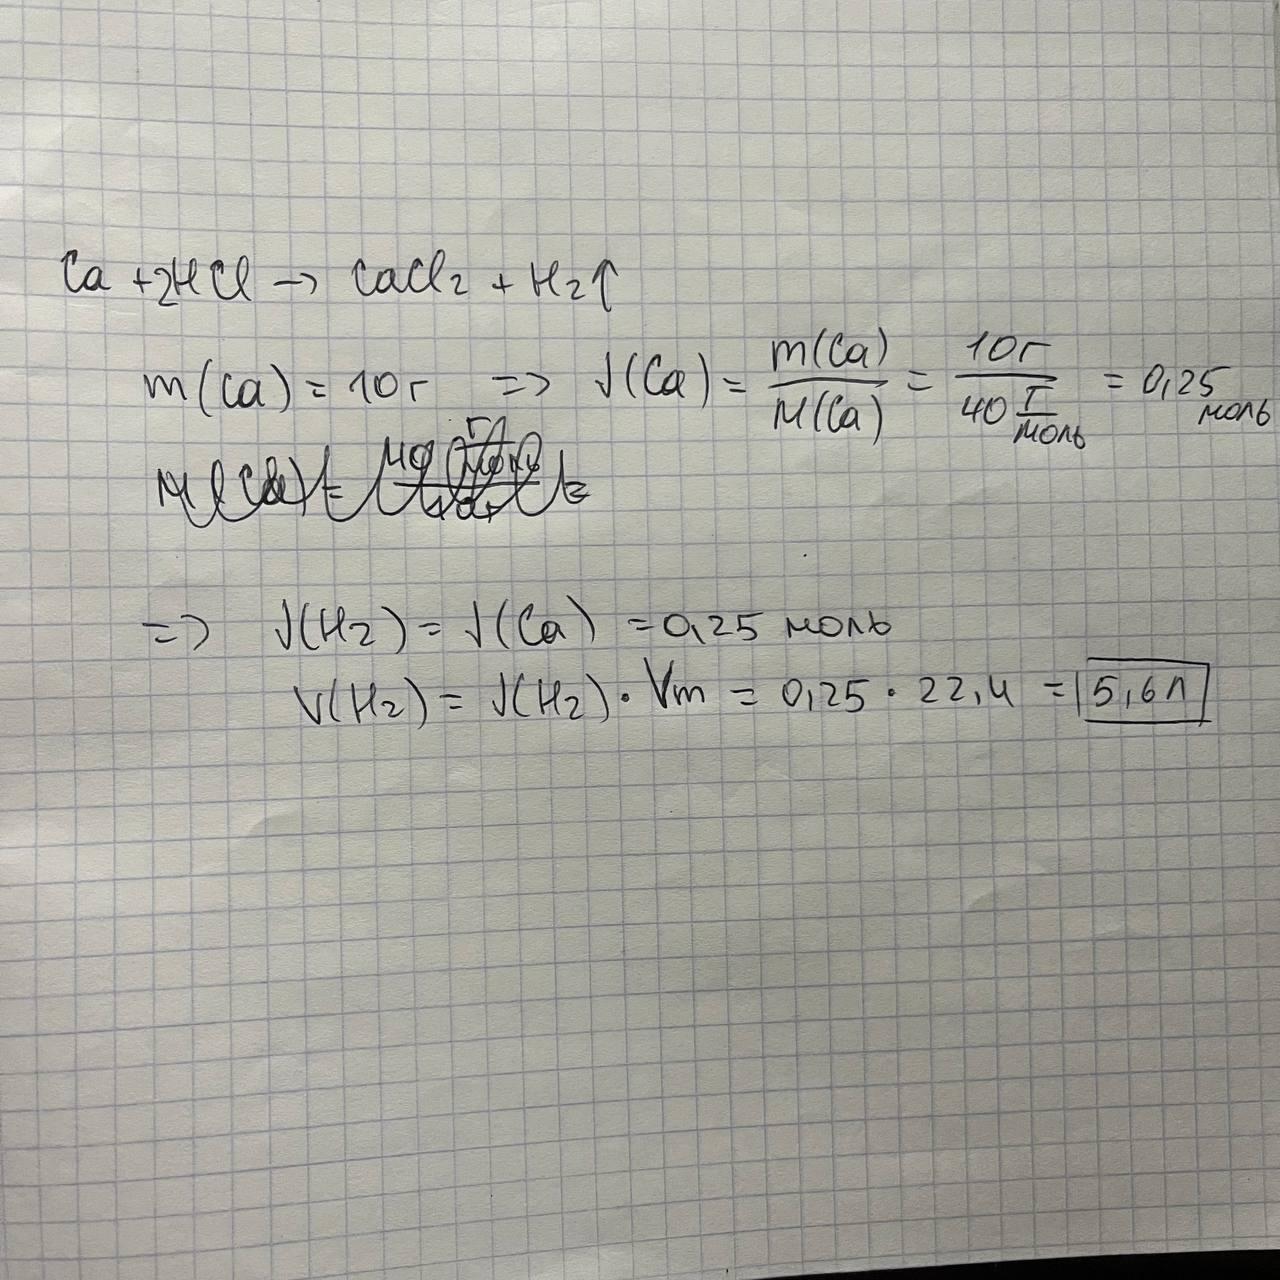 Ca + 2HCl → CaCl₂ + H₂↑
m(Ca) = 10г => ν(Ca) = m(Ca)/M(Ca) = 10г/40 г/моль = 0,25 моль
=> ν(H₂) = ν(Ca) = 0,25 моль
V(H₂) = ν(H₂) · Vm = 0,25 · 22,4 = 5,6л